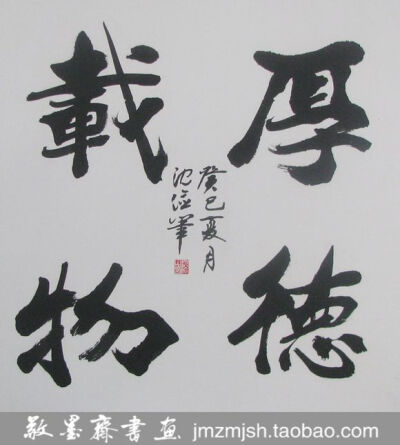 厚德
載物
癸巳夏月
沈俭筆
敬墨齋書畫 jmzmjsh.taobao.com